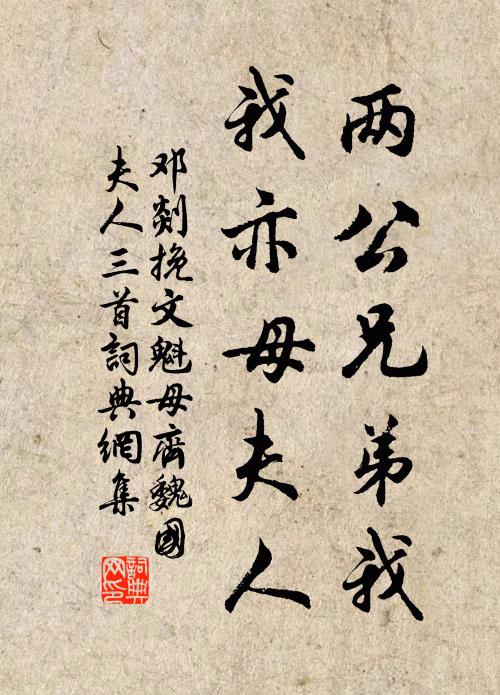 两公兄弟我
我亦母夫人
邓剡挽文魁母齊魏國
夫人三首詞典網集
詞典网印